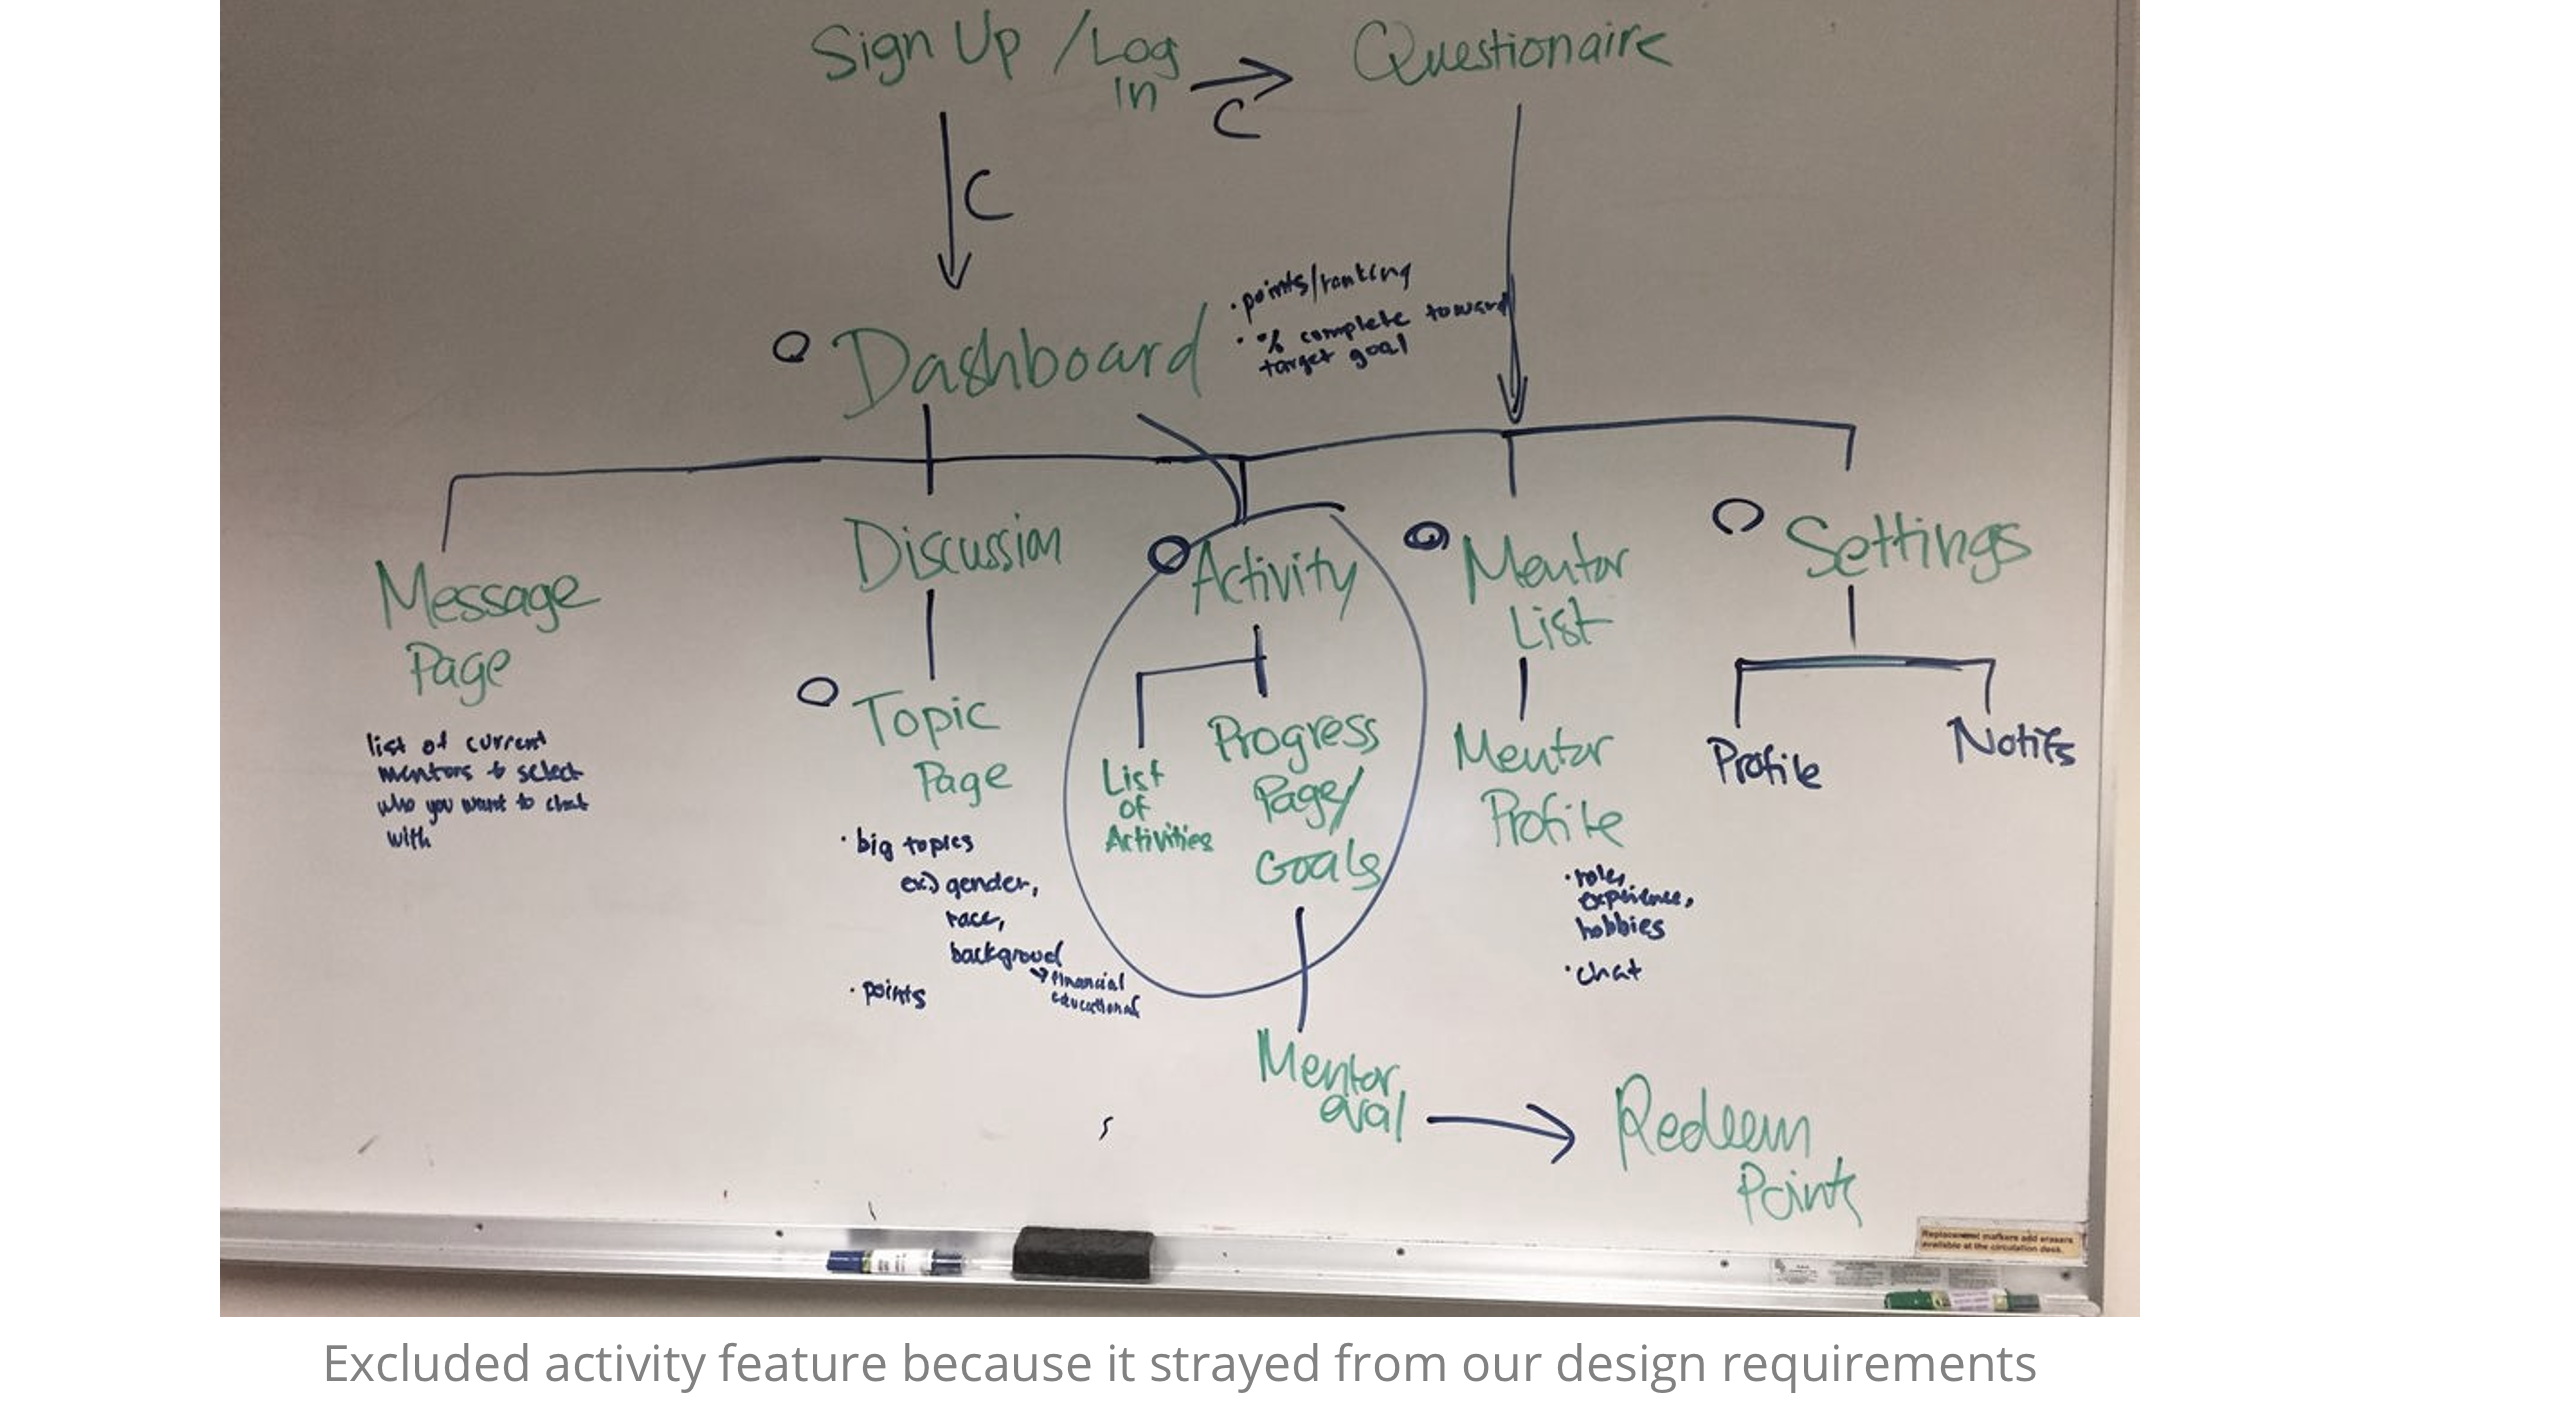 Sign Up / Log
In
C
Questionaire
C
• points/ranking
• % complete toward
target goal
Dashboard
Message
Page
list of current
mentors to select
who you want to chat
with
Discussion
Topic
Page
• big topics
ex) gender,
race,
backgroud
→ financial
educational
• points
Activity
List
of
Activities
Progress
Page/
Goals
Mentor
eval
Redeem
Points
Mentor
List
Mentor
Profile
• roles,
experience,
hobbies
• chat
Settings
Profile
Notifs
Replacement markers and erasers
available at the circulation desk.
Excluded activity feature because it strayed from our design requirements